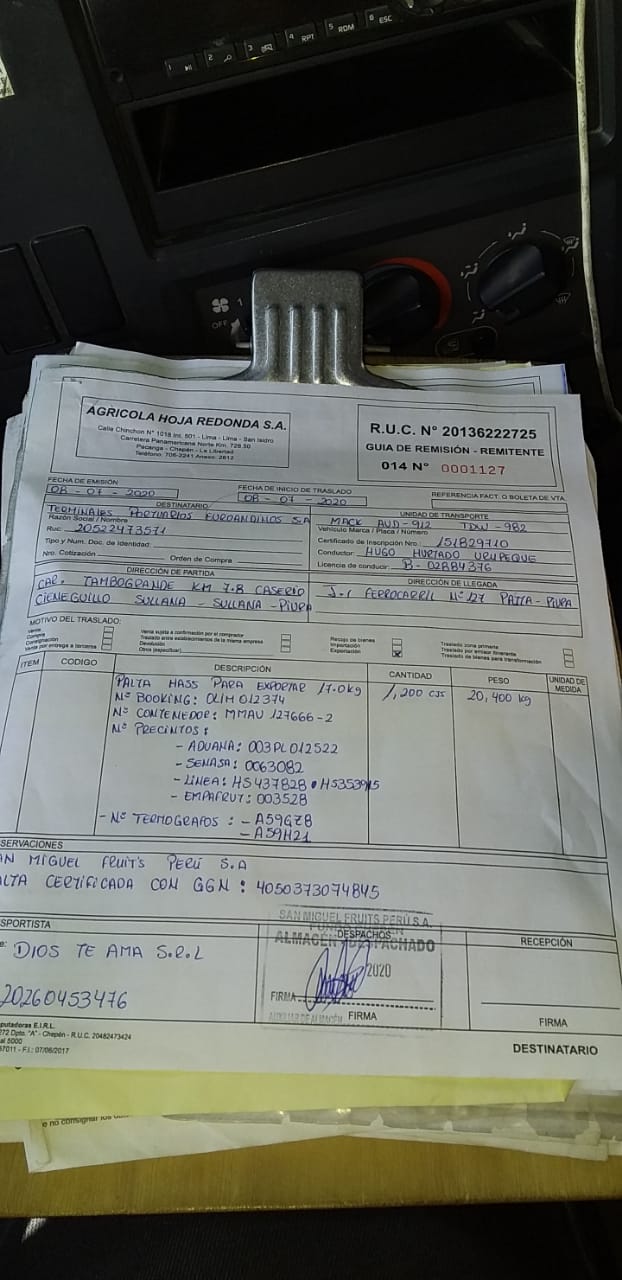 1
2
3
4 RPT
5 RDM
6 ESC
1
OFF
AGRICOLA HOJA REDONDA S.A.
Calle Chinchon N° 1018 Int. 501 - Lima - Lima - San Isidro
Carretera Panamericana Norte Km. 728.50
Pacanga - Chepén - La Libertad
Teléfono: 706-2241 Anexo: 2612
R.U.C. N° 20136222725
GUIA DE REMISIÓN - REMITENTE
014 N° 0001127
FECHA DE EMISIÓN
08 - 07 - 2020
FECHA DE INICIO DE TRASLADO
08 - 07 - 2020
REFERENCIA FACT. O BOLETA DE VTA.
DESTINATARIO:
TERMINALES PORTUARIOS EUROANDINOS SA
Razón Social / Nombre
Ruc: 20522473571
Tipo y Num. Doc. de Identidad:
Nro. Cotización
Orden de Compra
UNIDAD DE TRANSPORTE
MACK AUD-912 TDW-982
Vehículo Marca / Placa / Número
Certificado de Inscripción Nro.: 151829710
Conductor: HUGO HURTADO URUPEQUE
Licencia de conducir: B-02884376
DIRECCIÓN DE PARTIDA
CAR. TAMBOGRANDE KM 7.8 CASERIO
CIENEGUILLO SULLANA - SULLANA - PIURA
DIRECCIÓN DE LLEGADA
J-1 FERROCARRIL N° 127 PAITA - PIURA
MOTIVO DEL TRASLADO:
Venta
Compra
Consignación
Venta por entrega a terceros
Venta sujeta a confirmación por el comprador
Traslado entre establecimientos de la misma empresa
Devolución
Otros (especificar)
Recojo de bienes
Importación
Exportación X
Traslado zona primaria
Traslado por emisor itinerante
Traslado de bienes para transformación
ITEM CODIGO DESCRIPCIÓN CANTIDAD PESO UNIDAD DE MEDIDA
PALTA HASS PARA EXPORTAR 17.0kg 1,200 CJS 20,400 kg
N° BOOKING: OLIM012374
N° CONTENEDOR: MMAU 127666-2
N° PRECINTOS:
- ADUANA: 003PL012522
- SENASA: 0063082
- LÍNEA: HS437828 • HS353915
- EMPAFRUT: 003528
- N° TERMOGRAFOS : - A59GZ8
- A59H21
SERVACIONES
AN MIGUEL FRUITS PERÚ S.A
ALTA CERTIFICADA CON GGN : 4050373074845
SPORTISTA
e: DIOS TE AMA S.R.L
20260453476
SAN MIGUEL FRUITS PERÚ S.A.
DESPACHOS
ALMACÉN DESPACHADO
2020
FIRMA
AUXILIAR DE ALMACÉN
FIRMA
RECEPCIÓN
FIRMA
putadoras E.I.R.L.
272 Dpto. "A" - Chepén - R.U.C. 20482473424
al 5000
57011 - F.I.: 07/06/2017
DESTINATARIO
e no consignar los